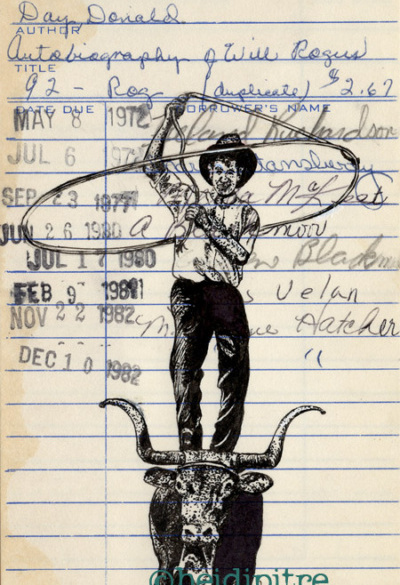 Day, Donald.
AUTHOR
Autobiography of Will Rogers
TITLE
92 - Rog (duplicate) $2.67
DATE DUE BORROWER'S NAME
MAY 8 1972 Richardson
JUL 6 Stansberry
SEP 23 1977
JUN 26 1980 A
JUL 17 1980
FEB 9 1981 Velan
NOV 22 1982 Hatcher
DEC 10 1982 "
©heidipitre